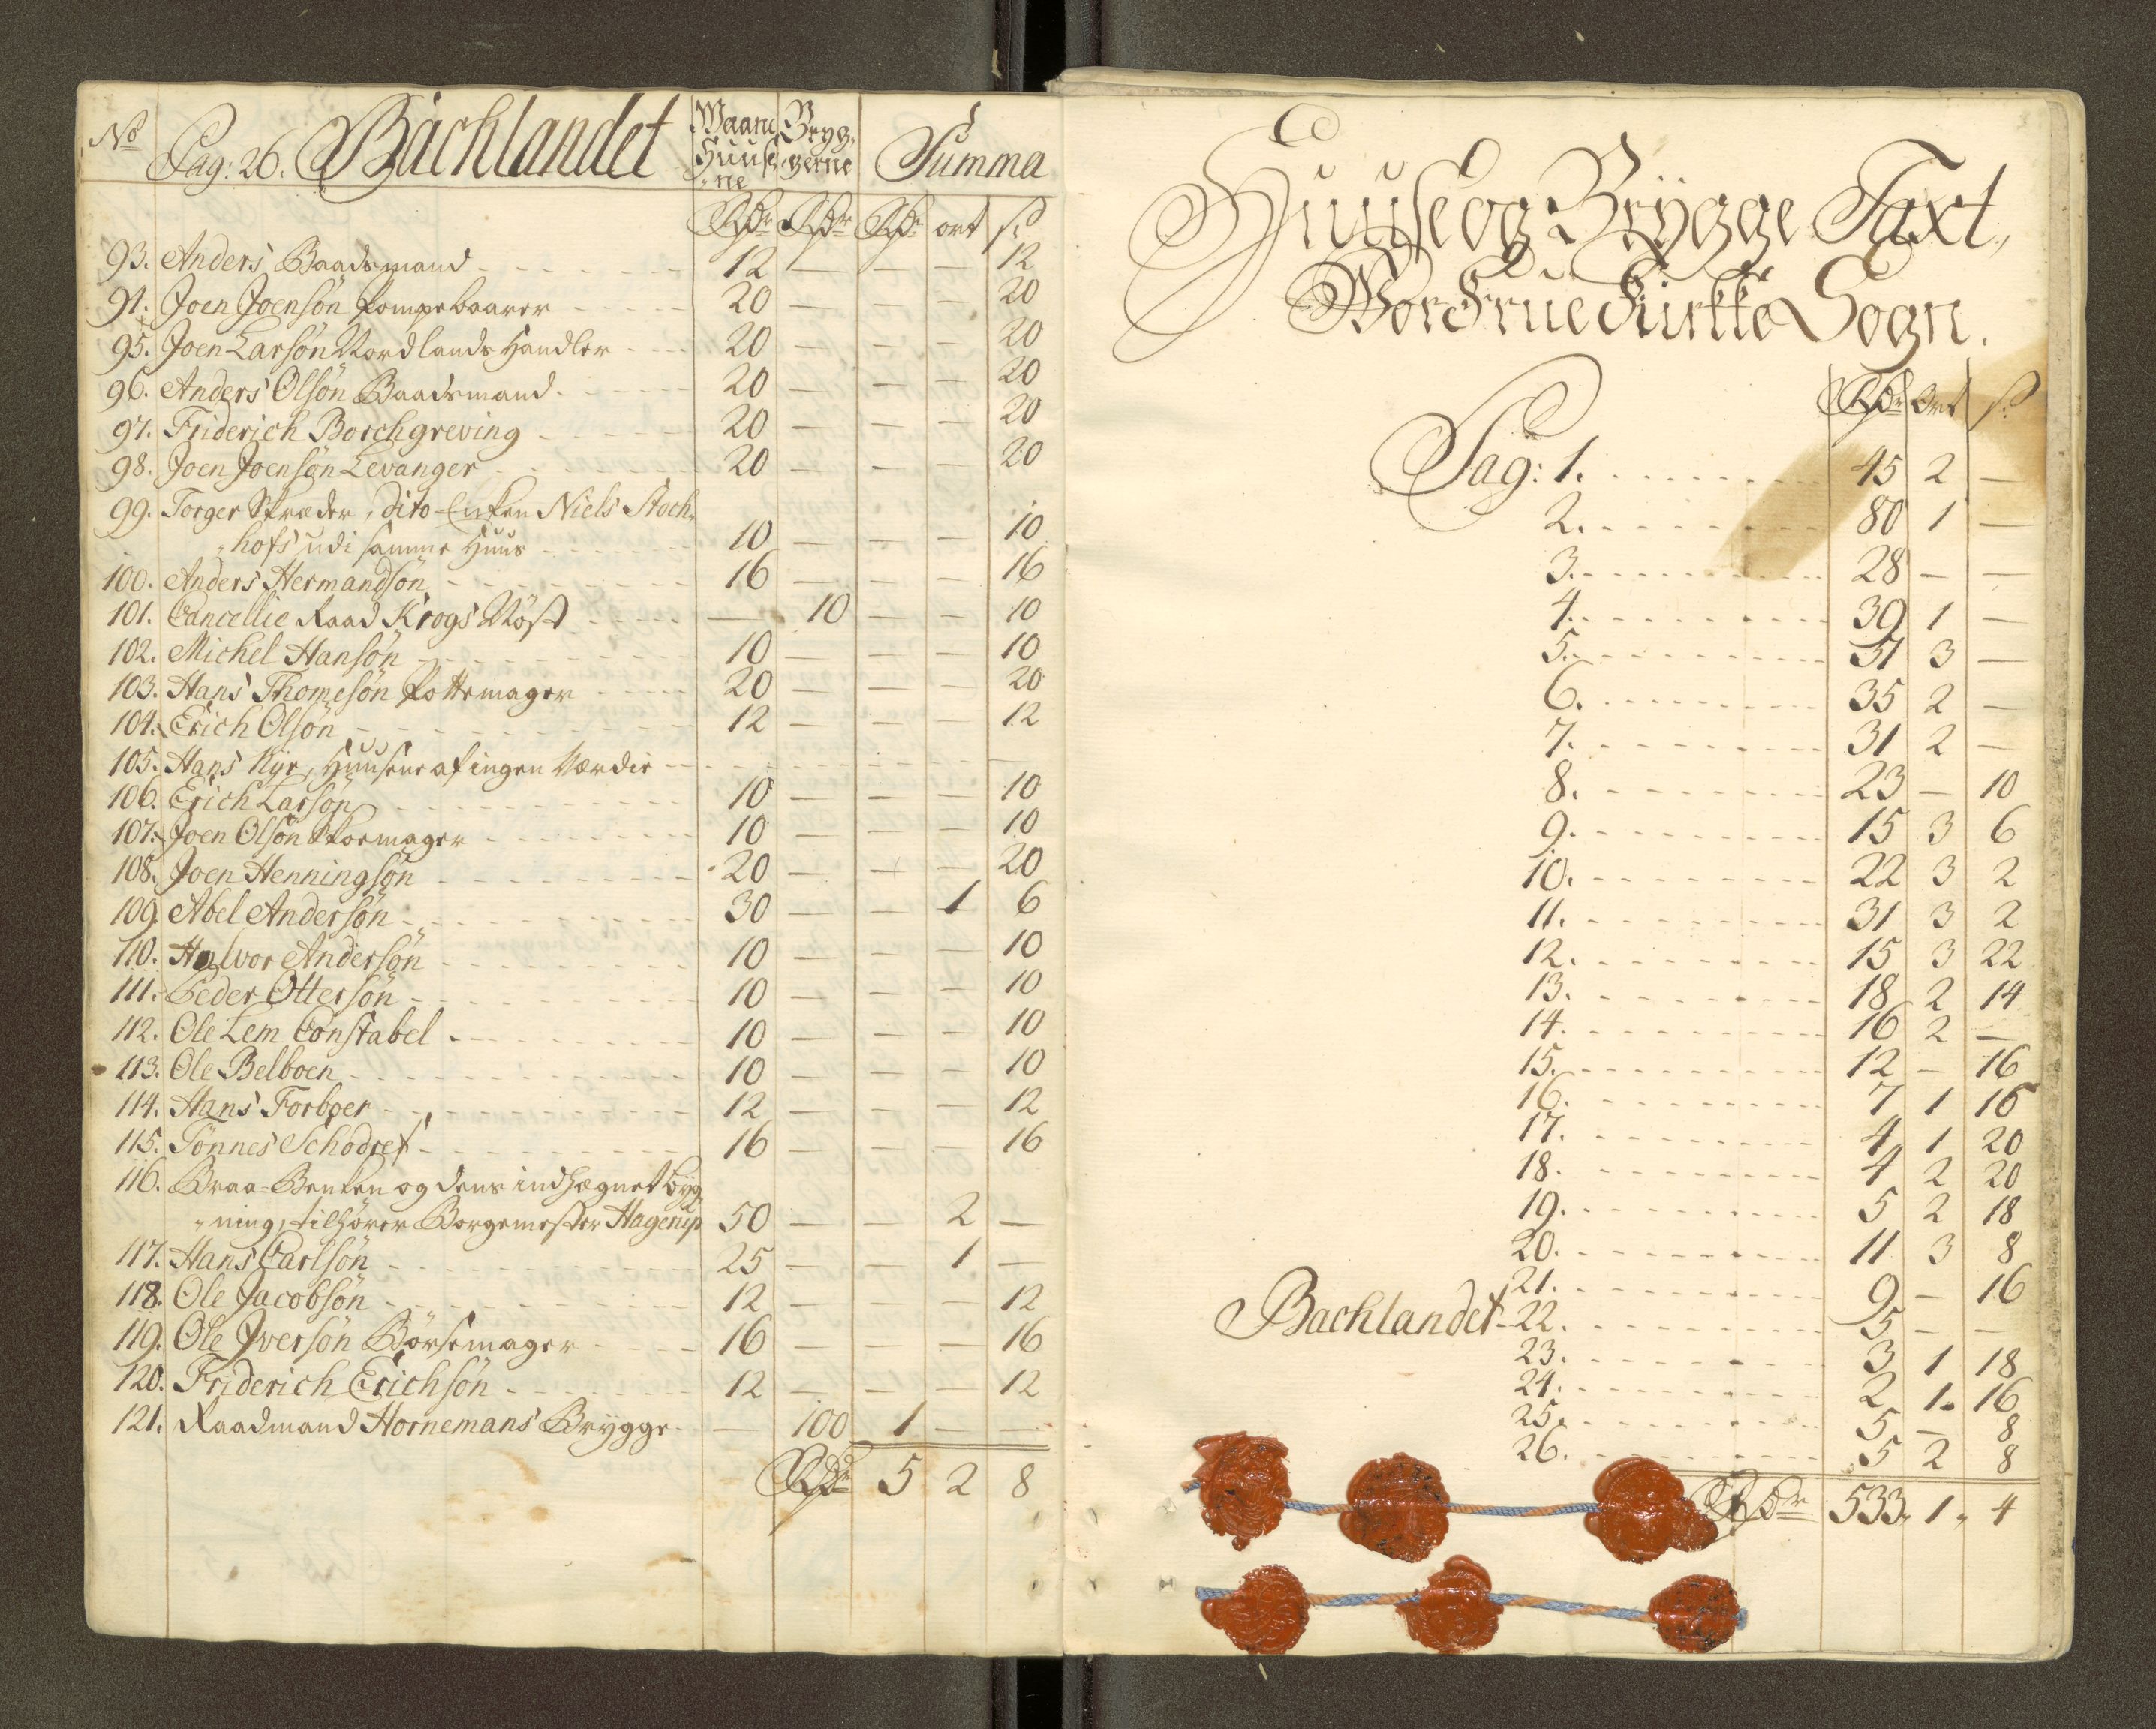 No Pag: 26. Bachlandet Waaningsr Brÿg¬ Summa
Huuse gerne
ne
Rdr Rdr Rdr ort s
93. Anders Baadsmand 12 — — — 12
94. Joen Joensøn Pompebaarer 20 — — — 20
95. Joen Larsøn Nordlands Handler 20 — — — 20
96. Anders Olsøn Baadsmand 20 — — — 20
97. Friderich Borchgreving 20 — — — 20
98. Joen Joensøn Levanger 20 — — — 20
99. Torger Skræder, dito Enken Niels Stoch¬
hofs udi samme Huus 10 — — — 10
100. Anders Hermandsøn 16 — — — 16
101. Cancellie Raad Krogs Nøst — 10 — — 10
102. Michel Hansøn 10 — — — 10
103. Hans Thomesøn Pottemager 20 — — — 20
104. Erich Olsøn 12 — — — 12
105. Hans Kyr, Huusene af ingen Værdie
106. Erich Larsøn 10 — — — 10
107. Joen Olsøn Skoemager 10 — — — 10
108. Joen Henningsøn 20 — — — 20
109. Abel Andersøn 30 — — 1 6
110. Halvor Andersøn 10 — — — 10
111. Peder Ottersøn 10 — — — 10
112. Ole Lem Constabel 10 — — — 10
113. Ole Belboen 10 — — — 10
114. Hans Forboer 12 — — — 12
115. Tønnes Schodref 16 — — — 16
116. Braa-Benken og dens indhægnet byg
ning, tilhører Borgemester Hagerup 50 — — 2 —
117. Hans Carlsøn 25 — — 1 —
118. Ole Jacobsøn 12 — — — 12
119. Ole Iversøn Børsemager 16 — — — 16
120. Friderich Erichsøn 12 — — — 12
121. Raadmand Hornemans Brygge — 100 1 — —
Rdr 5 2 8
Huuse og Brÿgge Taxt,
Wor Frue Kirkke Sogn.
Rdr Ort s
Pag: 1. 45 2 —
2. 80 1 —
3. 28 — —
4. 39 1 —
5. 51 3 —
6. 35 2 —
7. 31 2 —
8. 23 — 10
9. 15 3 6
10. 22 3 2
11. 31 3 2
12. 15 3 22
13. 18 2 14
14. 16 2 —
15. 12 — 16
16. 7 1 16
17. 4 1 20
18. 4 2 20
19. 5 2 18
20. 11 3 8
21. 9 — 16
Bachlandet-22. 5 — —
23. 3 1 18
24. 2 1. 16
25. 5 — 8
26. 5 2 8
Rdr 533, 1, 4